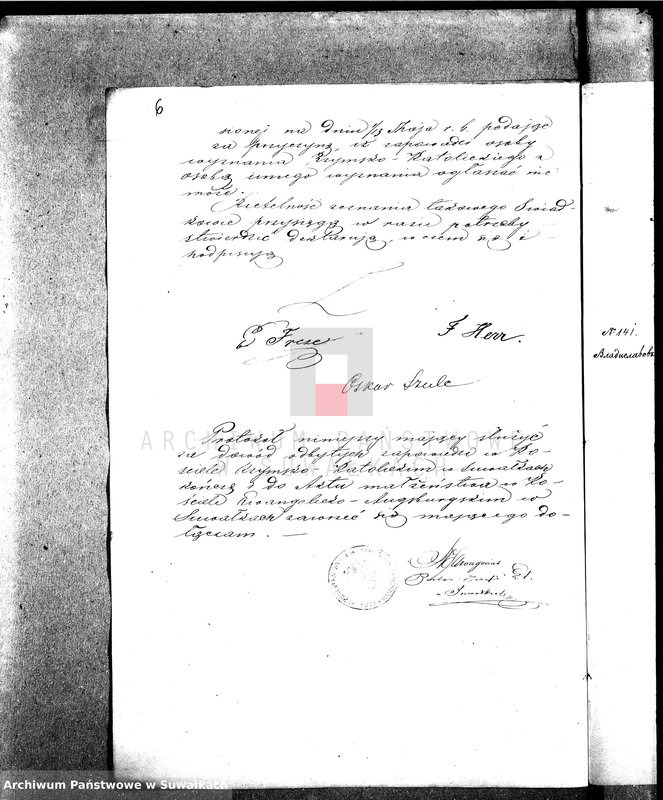 6
nonej na dniu 1/13 Maja r. b. podając
za przyczynę, iż zapowiedzi osoby
wyznania Rzymsko-Katolickiego z
osobą innego wyznania ogłaszać nie
może.
Rzetelność zeznania takowego Świad-
kowie przysięgą w razie potrzeby
stwierdzić deklarują, w czem się i
podpisują
E Frese
F Herr.
Oskar Szulc
Protokół niniejszy mający służyć
za dowód odbytych zapowiedzi w Ko-
ściele Rzymsko-Katolickim w Suwałkach
kończę i do Aktu małżeństwa w Ko-
ściele Ewangelicko-Augsburgskim w
Suwałkach zawrzeć się mającego do-
łączam. —
Pastor
Suwałki
N 141.
Владиславовъ
ARCHIWUM PAŃSTWOWE
W SUWAŁKACH
Archiwum Państwowe w Suwałkach